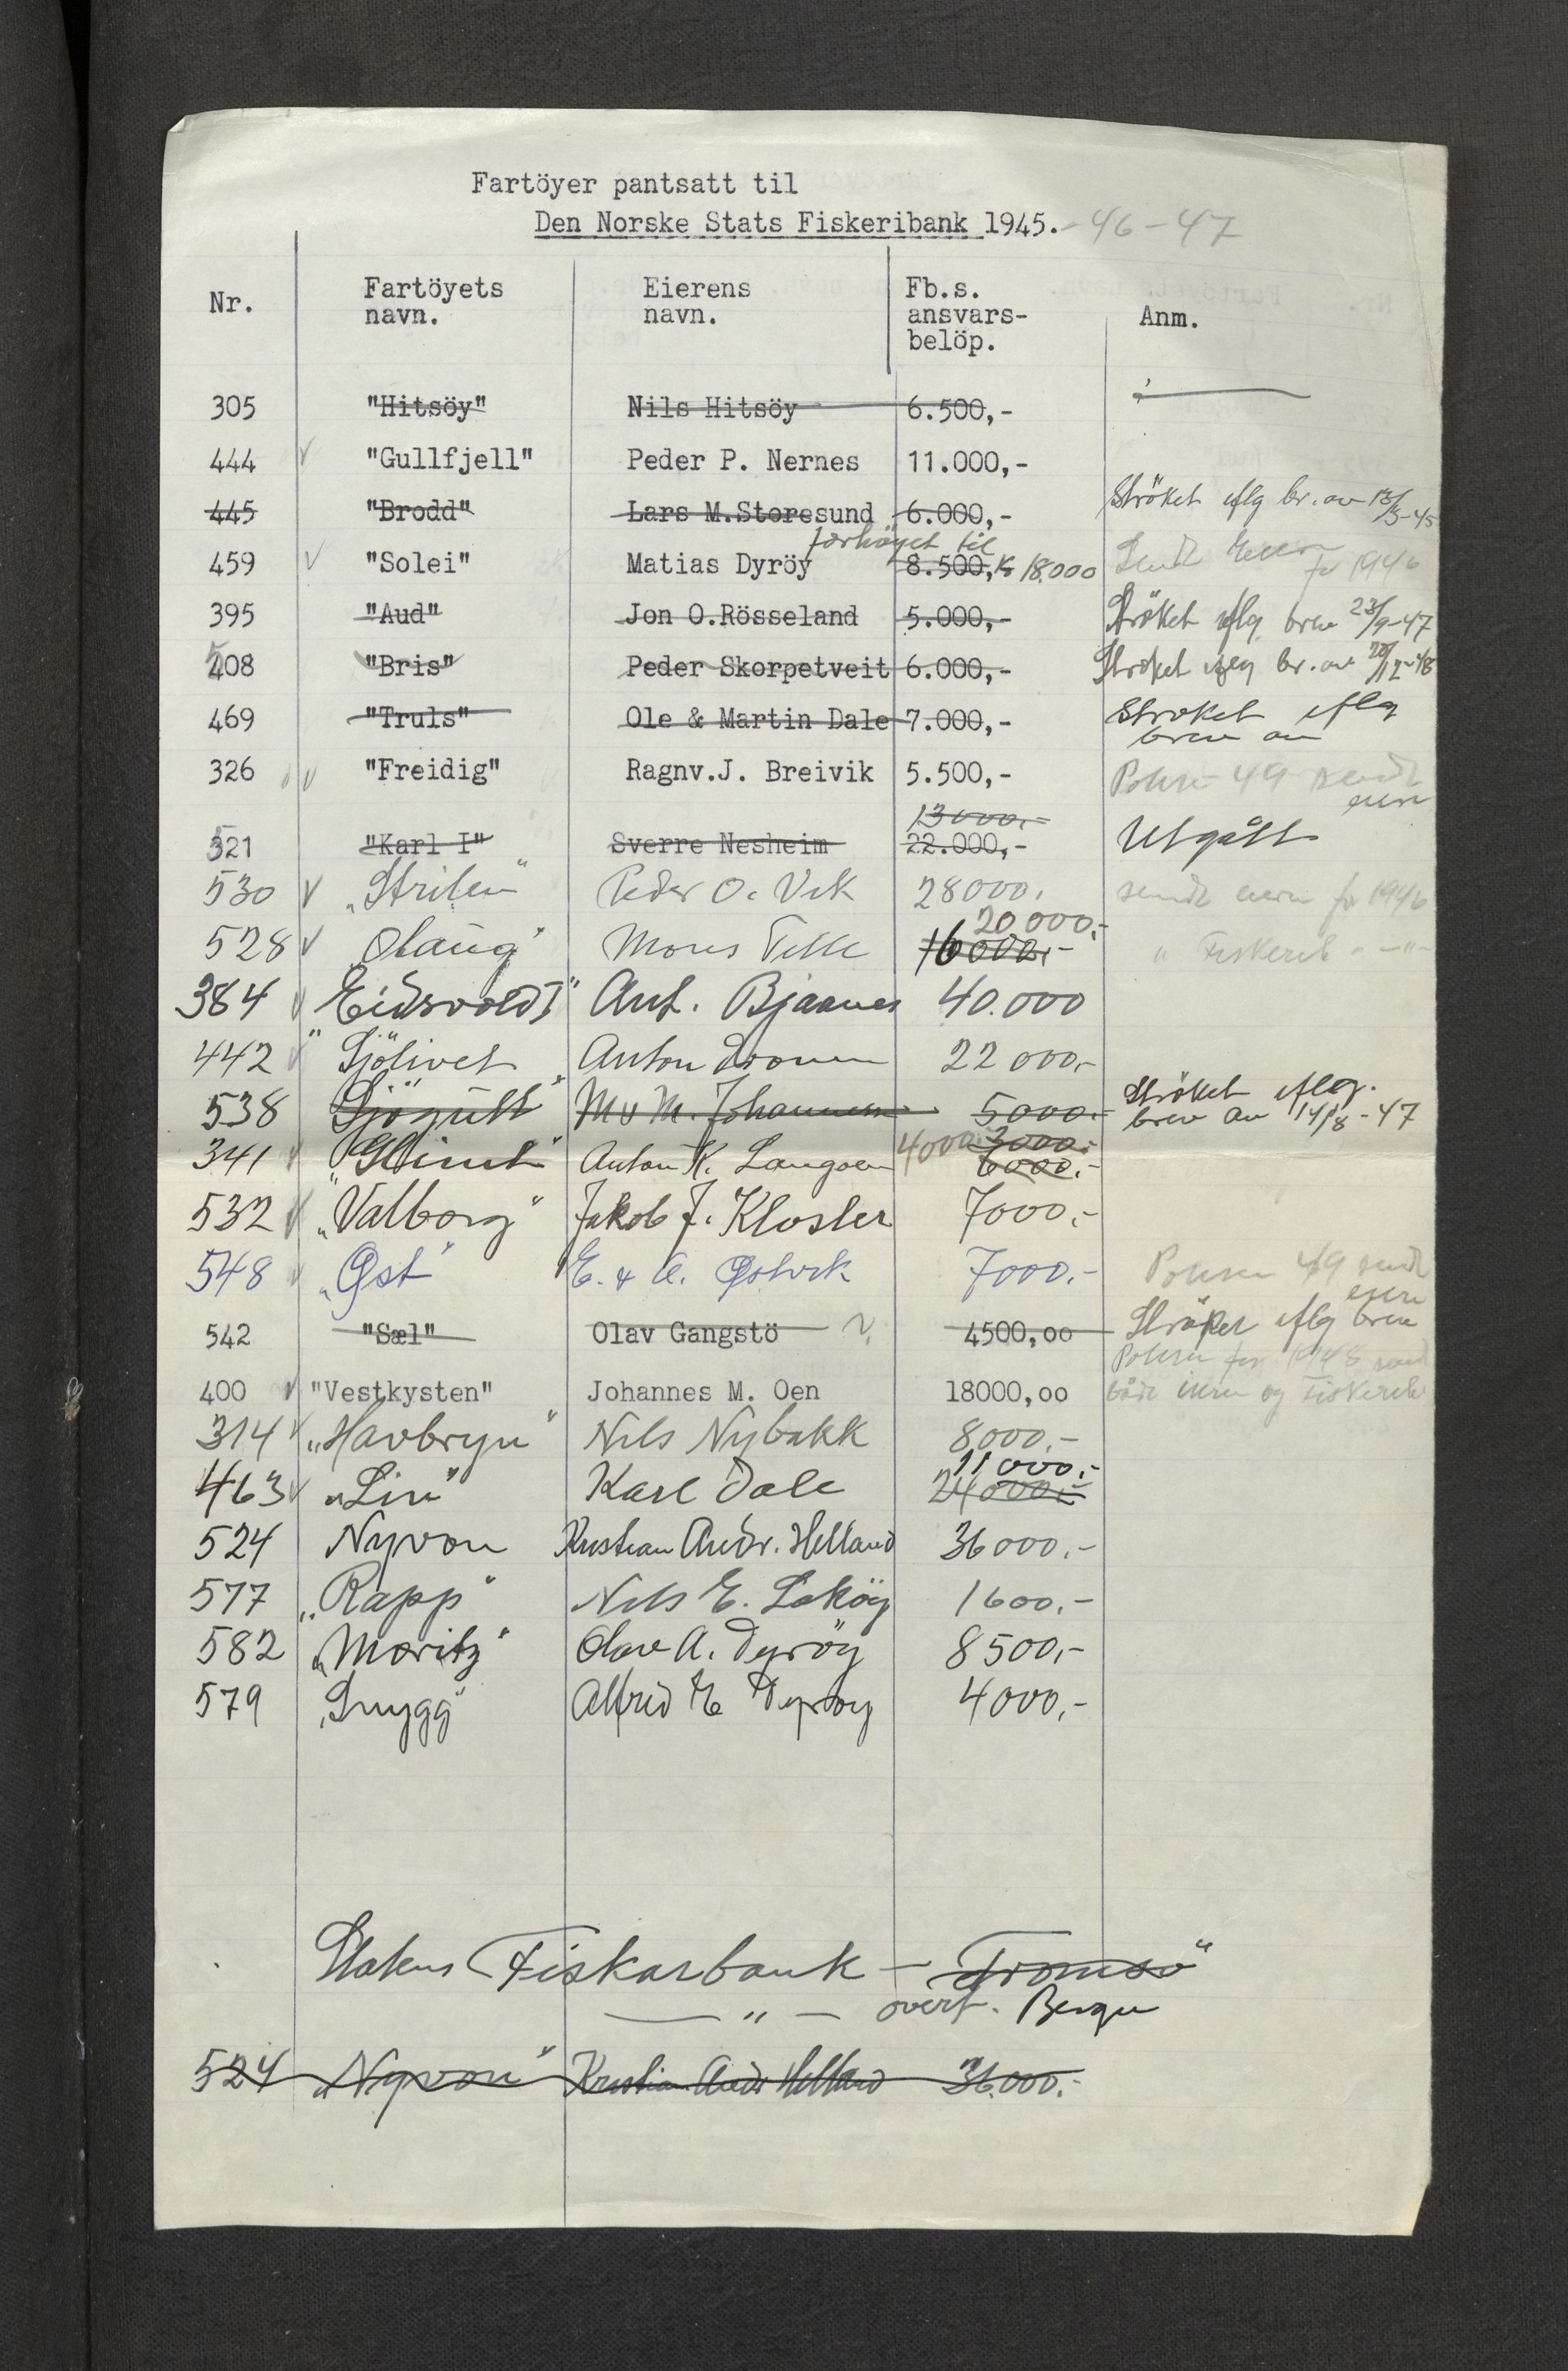 Fartöyer pantsatt til
Den Norske Stats Fiskeribank 1945.-46-47
Nr. Fartöyets navn. Eierens navn. Fb.s. ansvars-belöp. Anm.
305 "Hitsöy" Nils Hitsöy 6.500,-
444 "Gullfjell" Peder P. Nernes 11.000,-
445 "Brodd" Lars M.Storesund 6.000,- Ströket iflg br. av 13/3-45
forhöyet til
459 "Solei" Matias Dyröy 8.500,- 18.000 Sendt eieren for 1946
395 "Aud" Jon O.Rösseland 5.000,- Ströket iflg brev 23/9-47
508 "Bris" Peder Skorpetveit 6.000,- Ströket iflg br. av /12-48
469 "Truls" Ole & Martin Dale 7.000,- Ströket iflg brev av
326 "Freidig" Ragnv.J. Breivik 5.500,- Polisen 49 sendt eieren
13000,-
521 "Karl I" Sverre Nesheim 22.000,- Utgått
530 "Strilen" Peder O. Vik 28000, sendt eieren for 1946
20000,-
528 "Olaug" Mons Telle 16000,- " Fiskerib - -"-
384 Eidsvold I" Ant. Bjaanes 40.000
442 "Sjölivet Anton 22000,-
538 "Sjögutt" M & M. Johannessen 5000,- Ströket iflg. brev av 14/8-47
4000,- 3000,-
341 "Glimt" Anton K. Langøen 6000,-
532 "Valborg" Jakob J. Kloster 7000,-
548 "Øst" E. & A. Østvik 7000.- Polisen 49 sendt eieren
542 "Sæl" Olav Gangstö 4500,oo Ströket iflg brev
400 "Vestkysten" Johannes M. Oen 18000,oo Polisen for 1948 sendt både eieren og Fiskerib
314 "Havbryn" Nils Nybakk 8000,-
11000,-
463 "Liv" Karl Dale 24000,-
524 Nyvon Kristian Andr. Helland 36000,-
577 "Rapp" Nils E. Loköy 1600,-
582 "Moritz" Olav A. Dyröy 8500,-
579 "Snygg" Alfred E Dyröy 4000,-
Statens Fiskarbank - Tromsö"
-"- overf. Bergen
524 "Nyvon" Kristian Andr Helland 36.000.-